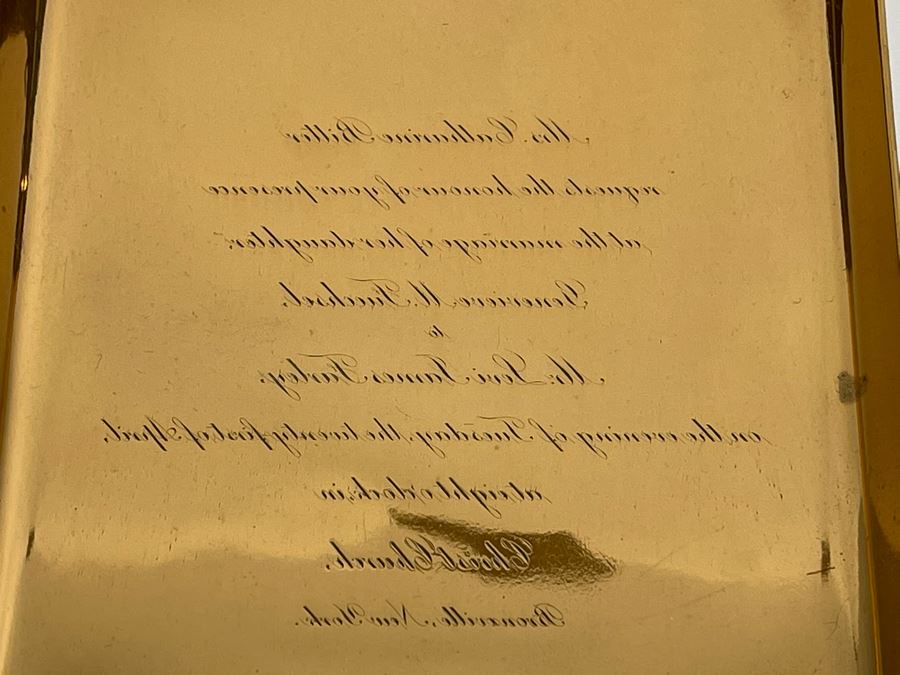 Mrs. Catharine Bitter
requests the honour of your presence
at the marriage of her daughter
Genevieve M. Fuechsel,
to
Mr. Levi James Farley,
on the evening of Tuesday, the twenty first of April,
at eight o'clock, in
Christ Church,
Bronxville, New York.